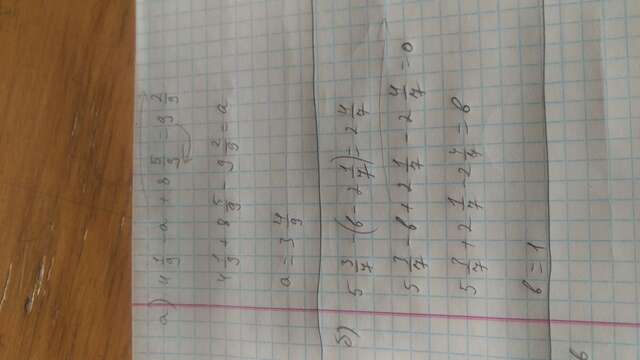 а) 4 1/9 - a + 8 5/9 = 9 2/9
4 1/9 + 8 5/9 - 9 2/9 = a
a = 3 4/9
б) 5 3/7 - (b - 2 1/7) = 2 4/7
5 3/7 - b + 2 1/7 - 2 4/7 = 0
5 3/7 + 2 1/7 - 2 4/7 = b
b = 1
в